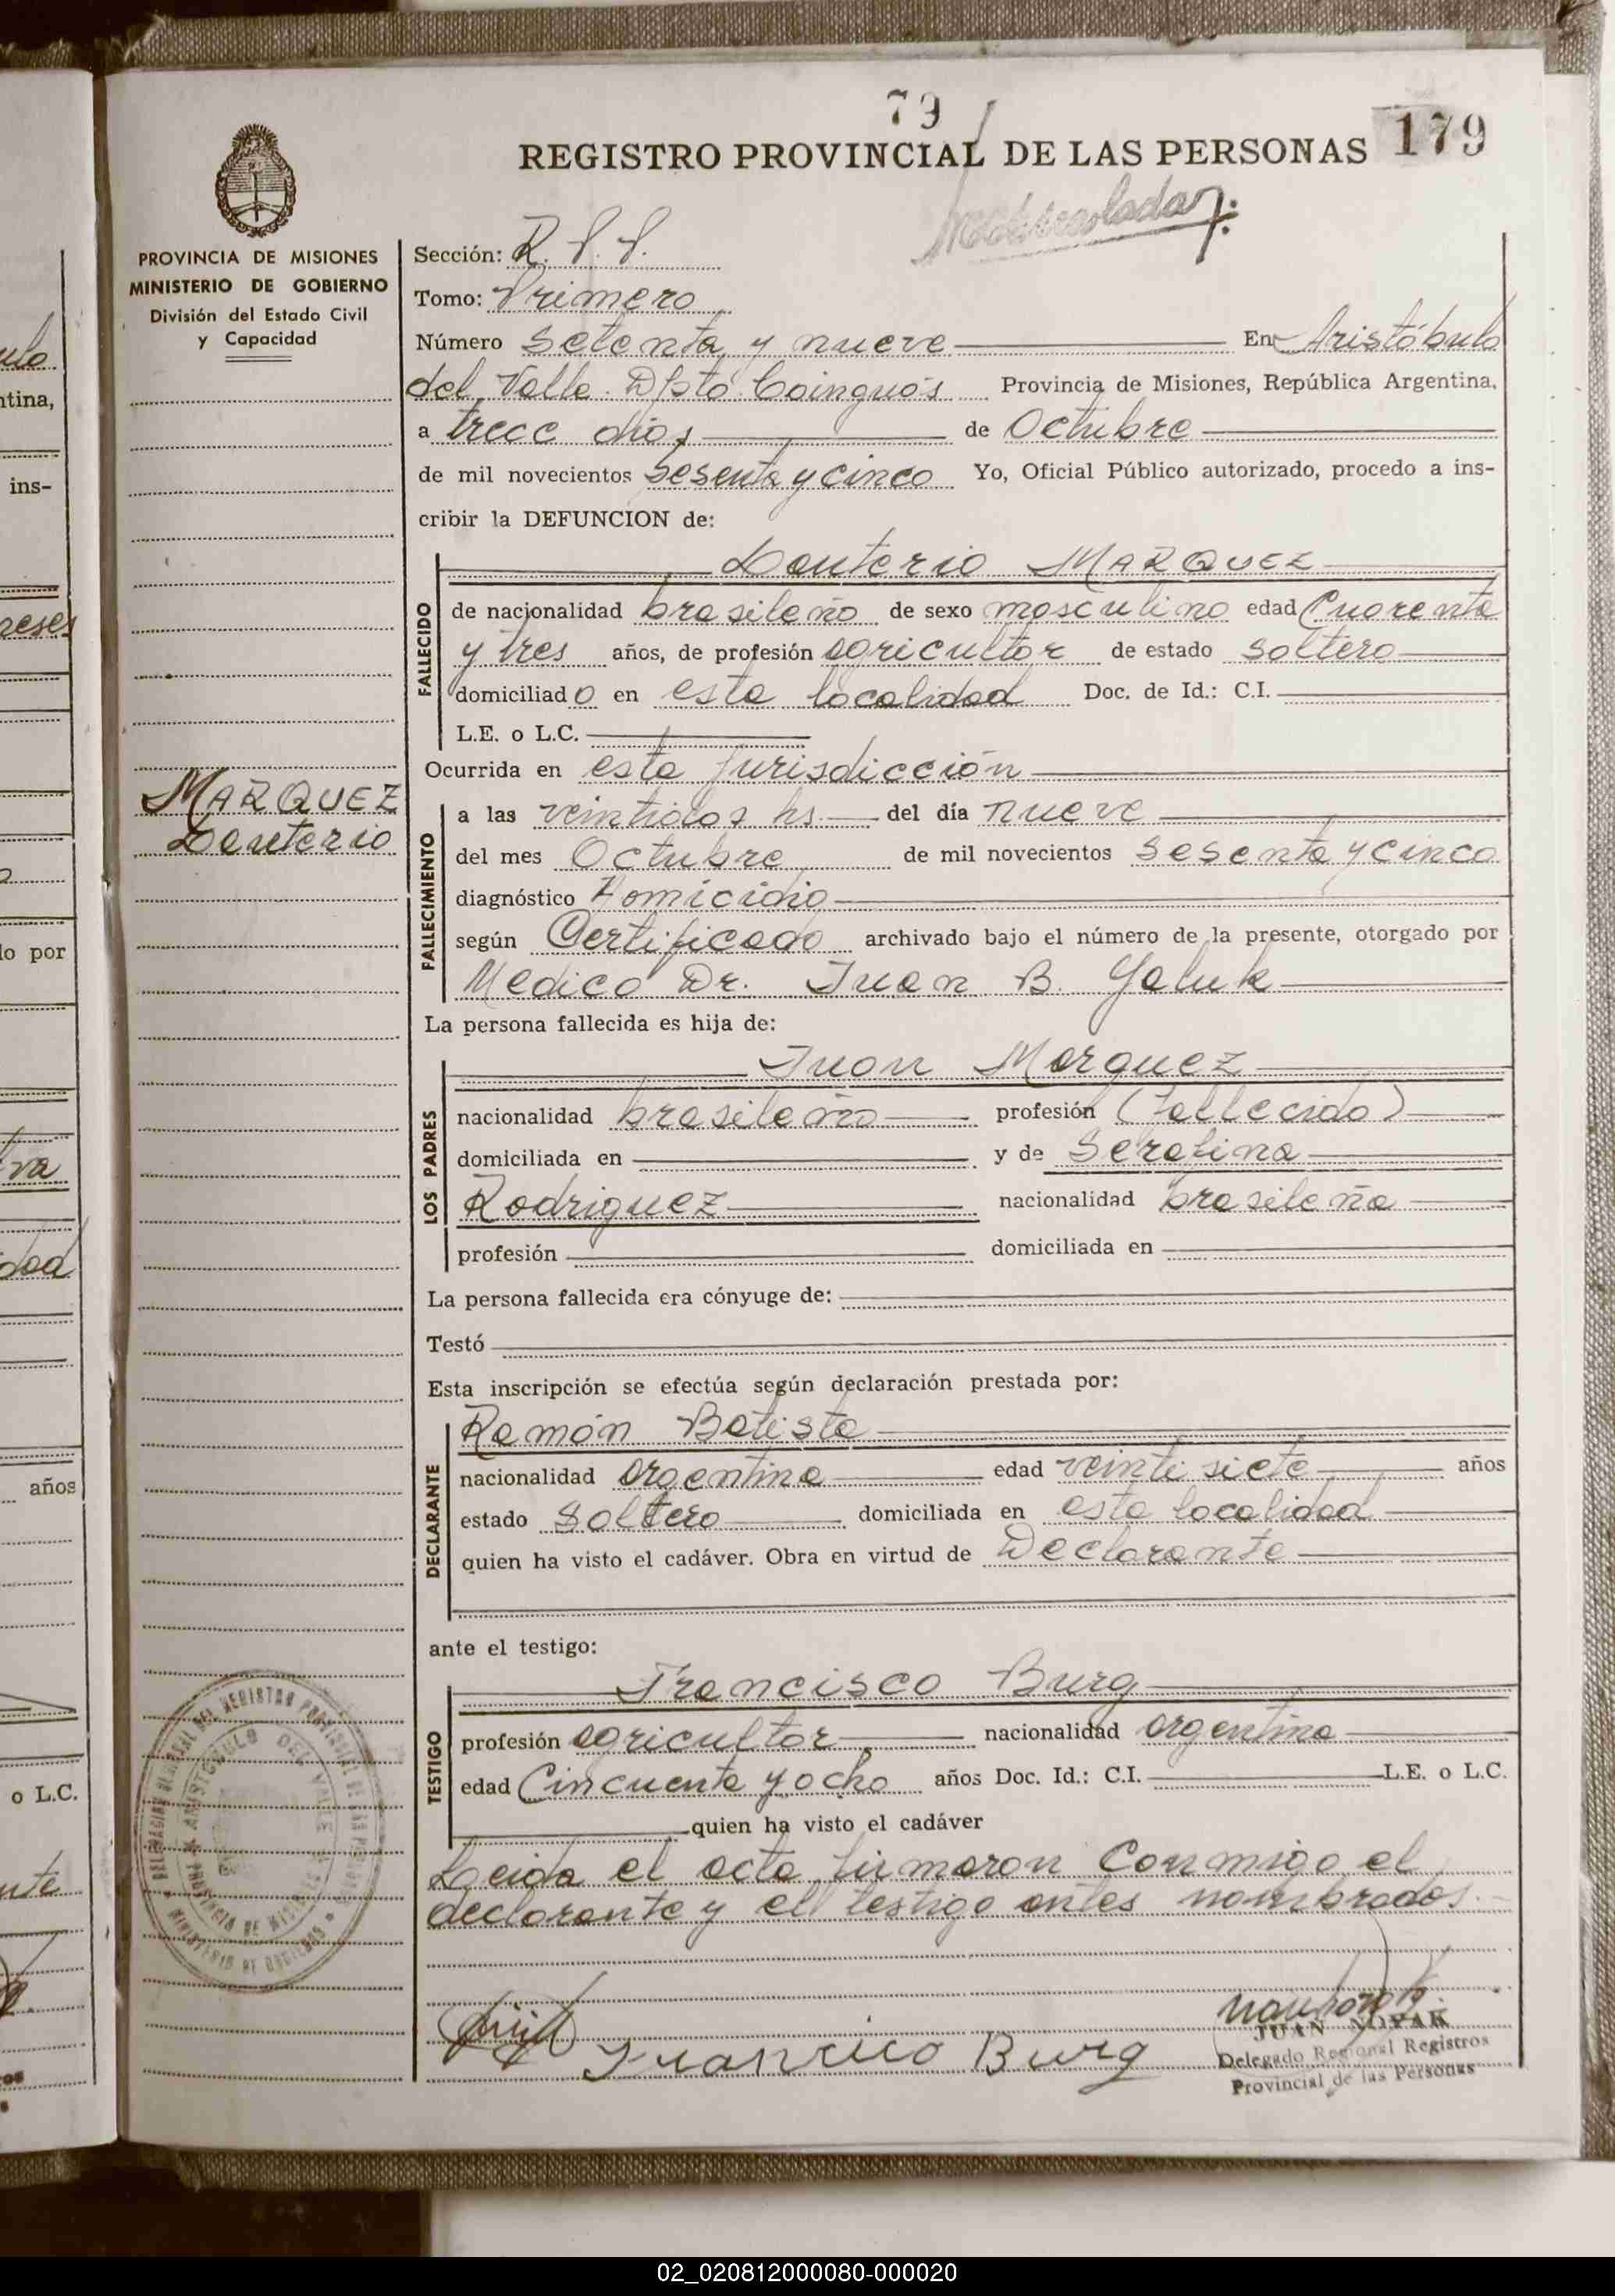 79
REGISTRO PROVINCIAL DE LAS PERSONAS 179
PROVINCIA DE MISIONES
MINISTERIO DE GOBIERNO
División del Estado Civil
y Capacidad
Sección:
Tomo: Primero
Número Setenta y nueve En Aristóbulo
del Valle. Dpto Cainguás Provincia de Misiones, República Argentina,
a trece dias de Octubre
de mil novecientos Sesenta y cinco Yo, Oficial Público autorizado, procedo a ins-
cribir la DEFUNCION de:
MARQUEZ
FALLECIDO
de nacionalidad brasileño de sexo masculino edad Cuarenta
y tres años, de profesión agricultor de estado soltero
domiciliado en esta localidad Doc. de Id.: C.I.
L.E. o L.C.
Ocurrida en esta jurisdicción
MARQUEZ
FALLECIMIENTO
a las veintidos hs. del día nueve
del mes Octubre de mil novecientos sesenta y cinco
diagnóstico Homicidio
según Certificado archivado bajo el número de la presente, otorgado por
Medico Dr. Juan B.
La persona fallecida es hija de:
Juan Marquez
LOS PADRES
nacionalidad brasileño profesión (fallecido)
domiciliada en y de Serafina
Rodriguez nacionalidad brasileña
profesión domiciliada en
La persona fallecida era cónyuge de:
Testó
Esta inscripción se efectúa según declaración prestada por:
Ramón Batista
DECLARANTE
nacionalidad argentina edad veintisiete años
estado Soltero domiciliada en esta localidad
quien ha visto el cadáver. Obra en virtud de Declarante
ante el testigo:
Francisco Burg
TESTIGO
profesión agricultor nacionalidad argentina
edad Cincuenta y ocho años Doc. Id.: C.I. L.E. o L.C.
quien ha visto el cadáver
Leida el acta firmaron conmigo el
declarante y el testigo antes nombrados.
Francisco Burg
JUAN NOVAK
Delegado Regional Registros
Provincial de las Personas
ntina,
ins-
lo por
años
o L.C.
02_020812000080-000020